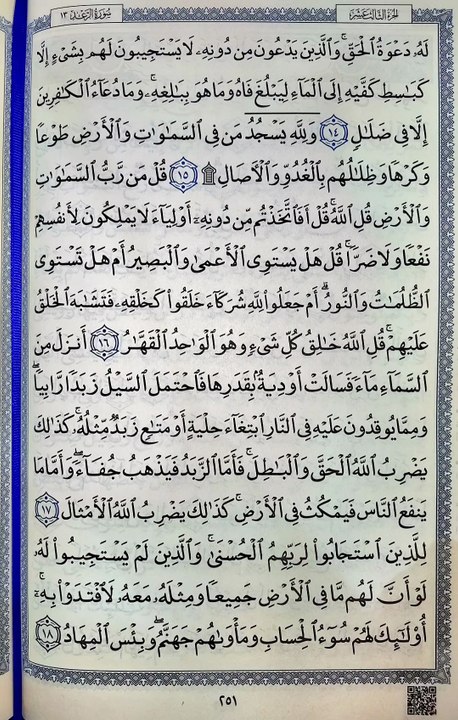 الجزء الثالث عشر
سورة الرعد ١٣
لَهُۥ دَعْوَةُ ٱلْحَقِّ ۖ وَٱلَّذِينَ يَدْعُونَ مِن دُونِهِۦ لَا يَسْتَجِيبُونَ لَهُم بِشَىْءٍ إِلَّا
كَبَـٰسِطِ كَفَّيْهِ إِلَى ٱلْمَآءِ لِيَبْلُغَ فَاهُ وَمَا هُوَ بِبَـٰلِغِهِۦ ۚ وَمَا دُعَآءُ ٱلْكَـٰفِرِينَ
إِلَّا فِى ضَلَـٰلٍ ١٤ وَلِلَّهِ يَسْجُدُ مَن فِى ٱلسَّمَـٰوَٰتِ وَٱلْأَرْضِ طَوْعًا
وَكَرْهًا وَظِلَـٰلُهُم بِٱلْغُدُوِّ وَٱلْـَٔاصَالِ ۩ ١٥ قُلْ مَن رَّبُّ ٱلسَّمَـٰوَٰتِ
وَٱلْأَرْضِ قُلِ ٱللَّهُ ۚ قُلْ أَفَٱتَّخَذْتُم مِّن دُونِهِۦٓ أَوْلِيَآءَ لَا يَمْلِكُونَ لِأَنفُسِهِمْ
نَفْعًا وَلَا ضَرًّا ۚ قُلْ هَلْ يَسْتَوِى ٱلْأَعْمَىٰ وَٱلْبَصِيرُ أَمْ هَلْ تَسْتَوِى
ٱلظُّلُمَـٰتُ وَٱلنُّورُ ۗ أَمْ جَعَلُوا۟ لِلَّهِ شُرَكَآءَ خَلَقُوا۟ كَخَلْقِهِۦ فَتَشَـٰبَهَ ٱلْخَلْقُ
عَلَيْهِمْ ۚ قُلِ ٱللَّهُ خَـٰلِقُ كُلِّ شَىْءٍ وَهُوَ ٱلْوَٰحِدُ ٱلْقَهَّـٰرُ ١٦ أَنزَلَ مِنَ
ٱلسَّمَآءِ مَآءً فَسَالَتْ أَوْدِيَةٌۢ بِقَدَرِهَا فَٱحْتَمَلَ ٱلسَّيْلُ زَبَدًا رَّابِيًا ۚ
وَمِمَّا يُوقِدُونَ عَلَيْهِ فِى ٱلنَّارِ ٱبْتِغَآءَ حِلْيَةٍ أَوْ مَتَـٰعٍ زَبَدٌ مِّثْلُهُۥ ۚ كَذَٰلِكَ
يَضْرِبُ ٱللَّهُ ٱلْحَقَّ وَٱلْبَـٰطِلَ ۚ فَأَمَّا ٱلزَّبَدُ فَيَذْهَبُ جُفَآءً ۖ وَأَمَّا مَا
يَنفَعُ ٱلنَّاسَ فَيَمْكُثُ فِى ٱلْأَرْضِ ۚ كَذَٰلِكَ يَضْرِبُ ٱللَّهُ ٱلْأَمْثَالَ ١٧
لِلَّذِينَ ٱسْتَجَابُوا۟ لِرَبِّهِمُ ٱلْحُسْنَىٰ ۚ وَٱلَّذِينَ لَمْ يَسْتَجِيبُوا۟ لَهُۥ
لَوْ أَنَّ لَهُم مَّا فِى ٱلْأَرْضِ جَمِيعًا وَمِثْلَهُۥ مَعَهُۥ لَٱفْتَدَوْا۟ بِهِۦٓ ۚ
أُو۟لَـٰٓئِكَ لَهُمْ سُوٓءُ ٱلْحِسَابِ وَمَأْوَىٰهُمْ جَهَنَّمُ ۖ وَبِئْسَ ٱلْمِهَادُ ١٨
٢٥١